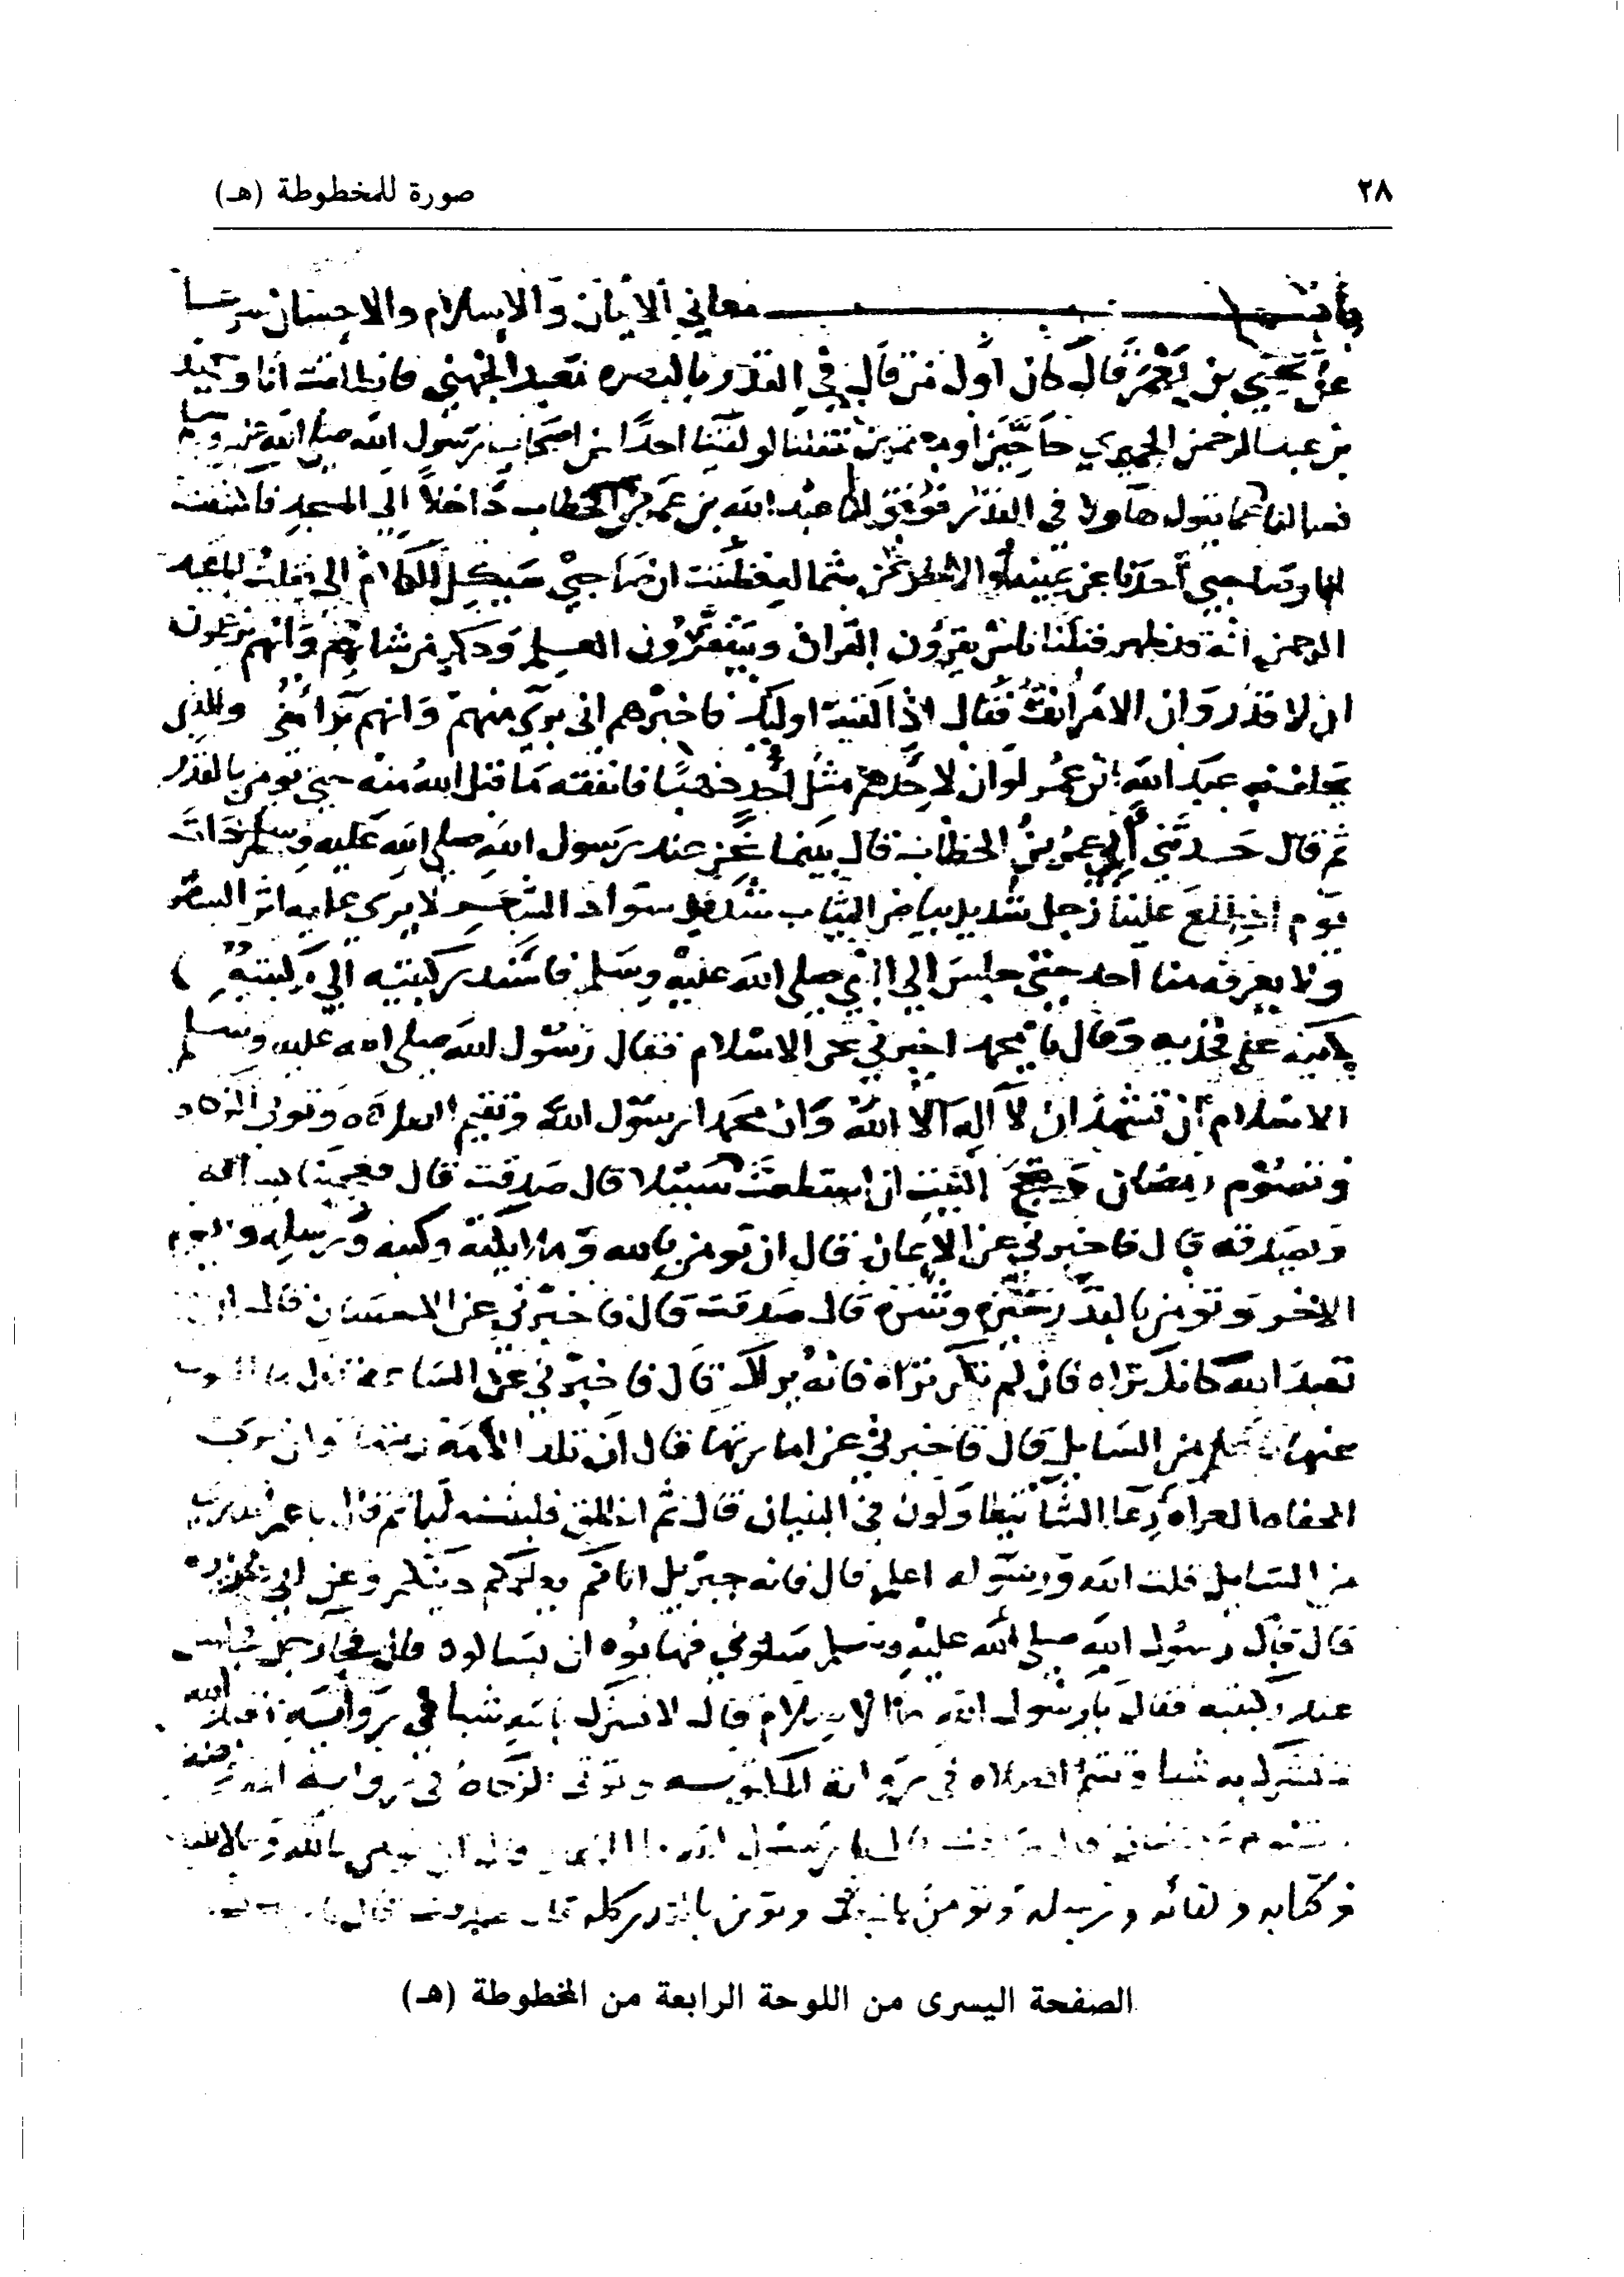 ٢٨
صورة للمخطوطة (هـ)
باب معاني الايمان والاسلام والاحسان شرعا
عن يحيى بن يعمر قال كان اول من قال في القدر بالبصره معبد الجهني فانطلقت انا وحميد
بن عبد الرحمن الحميري حاجين او معتمرين فقلنا لو لقينا احدا من اصحاب رسول الله صلى الله عليه وسلم
فسالناه عما يقول هاولا في القدر فوفق لنا عبد الله بن عمر بن الخطاب داخلا الى المسجد فاكتنفته
انا وصاحبي احدنا عن يمينه والاخر عن شماله فظننت ان صاحبي سيكل الكلام الي فقلت ابا عبد
الرحمن انه قد ظهر قبلنا ناس يقرؤن القران ويتقفرون العلم وذكر من شانهم وانهم يزعمون
ان لا قدر وان الامر انف فقال اذا لقيت اوليك فاخبرهم اني بري منهم وانهم برآ مني والذي
يحلف به عبد الله بن عمر لو ان لاحدهم مثل احد ذهبا فانفقه ما قبل الله منه حتى يومن بالقدر
ثم قال حدثني ابي عمر بن الخطاب قال بينما نحن عند رسول الله صلى الله عليه وسلم ذات
يوم اذ طلع علينا رجل شديد بياض الثياب شديد سواد الشعر لا يرى عليه اثر السفر
ولا يعرفه منا احد حتى جلس الى النبي صلى الله عليه وسلم فاسند ركبتيه الى ركبتيه
كفيه على فخذيه وقال يا محمد اخبرني عن الاسلام فقال رسول الله صلى الله عليه وسلم
الاسلام ان تشهد ان لا اله الا الله وان محمدا رسول الله وتقيم الصلاة وتوتي الزكاه
وتصوم رمضان وتحج البيت ان استطعت سبيلا قال صدقت قال فعجبنا يساله
ويصدقه قال فاخبرني عن الايمان قال ان تومن بالله وملايكته وكتبه ورسله واليوم
الاخر وتومن بالقدر خيره وشره قال صدقت قال فاخبرني عن الاحسان قال ان
تعبد الله كانك تراه فان لم تكن تراه فانه يراك قال فاخبرني عن الساعة قال ما المسول
عنها باعلم من السايل قال فاخبرني عن امارتها قال ان تلد الامة ربتها وان ترى
الحفاه العراه رعا الشا يتطاولون في البنيان قال ثم انطلق فلبثت مليا ثم قال يا عمر اتدري
من السايل قلت الله ورسوله اعلم قال فانه جبريل اتاكم يعلمكم دينكم وعن ابي هريره
قال قال رسول الله صلى الله عليه وسلم سلوني فهابوه ان يسالوه قال فجا رجل فجلس
عند ركبتيه فقال يا رسول الله ما الاسلام قال لا تشرك بالله شيا في رواية تعبد الله
لا تشرك به شيا وتقيم الصلاه في رواية المكتوبه وتوتي الزكاة في رواية المفروضة
وتصوم رمضان قال صدقت قال يا رسول الله ما الايمان قال ان تومن بالله وملايكته
وكتابه ولقائه ورسله وتومن بالبعث وتومن بالقدر كله قال صدقت قال يا رسول
الصفحة اليسرى من اللوحة الرابعة من المخطوطة (هـ)